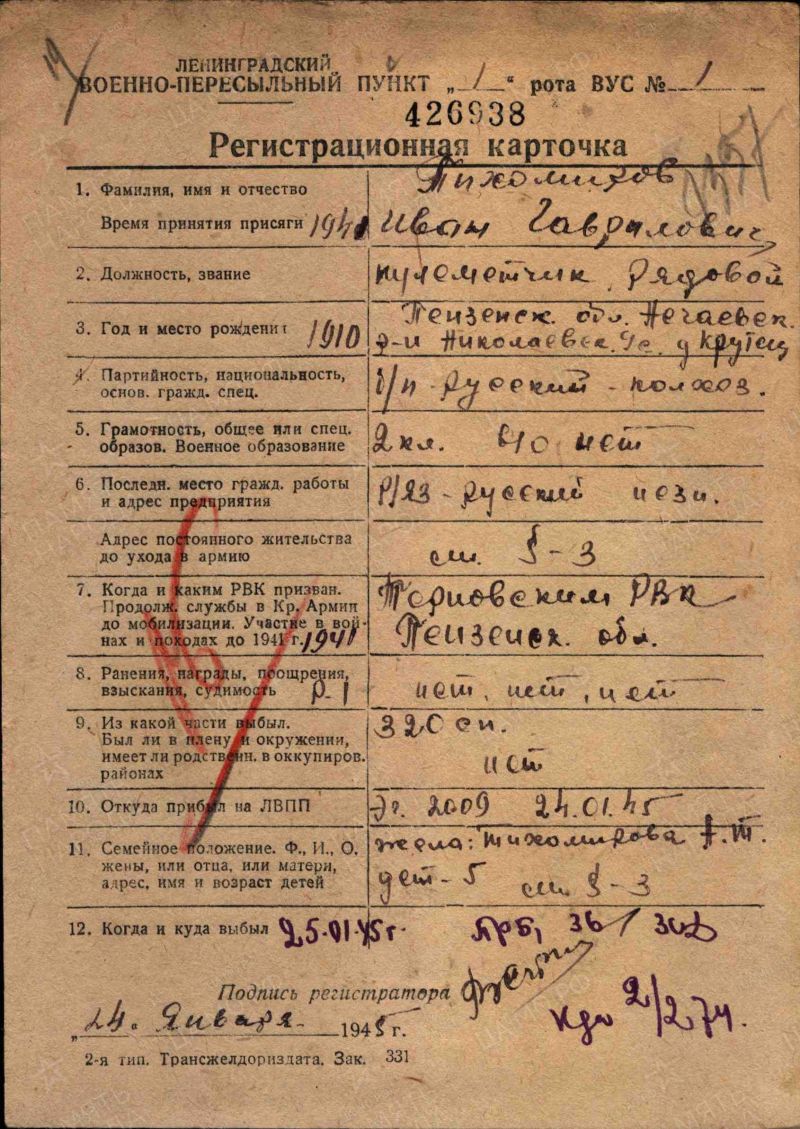 ЛЕНИНГРАДСКИЙ
ВОЕННО-ПЕРЕСЫЛЬНЫЙ ПУНКТ „ 1 “ рота ВУС № 1
426938
Регистрационная карточка
1. Фамилия, имя и отчество Тихомиров
Время принятия присяги 1941 Иван Гаврилович
2. Должность, звание пулеметчик, рядовой
3. Год и место рождения 1910 Пензенск. обл. Нечаевск.
р-н Николаевск. с/с д Крутец
4. Партийность, национальность,
основ. гражд. спец. б/п - русский - колхоз.
5. Грамотность, общее или спец.
образов. Военное образование 2 кл. в/о нет
6. Последн. место гражд. работы
и адрес предприятия Р/яз - русский
Адрес постоянного жительства
до ухода в армию см. § - 3
7. Когда и каким РВК призван. Терновским РВК
Продолж. службы в Кр. Армии
до мобилизации. Участие в вой-
нах и походах до 1941 г. 1941 Пензенск. обл.
8. Ранения, награды, поощрения,
взыскания, судимость Р-1 нет, нет, нет
9. Из какой части выбыл. 320 сп.
Был ли в плену и окружении,
имеет ли родственн. в оккупиров. нет
районах
10. Откуда прибыл на ЛВПП Эг. 2009 24.01.45
11. Семейное положение. Ф., И., О. жена: Тихомирова А.Т.
жены, или отца, или матери,
адрес, имя и возраст детей дет - 5 см. § - 3
12. Когда и куда выбыл 25.01.45г.
Подпись регистратора
„24. Января 1945 г.
2/274.
2-я тип. Трансжелдориздата. Зак. 331